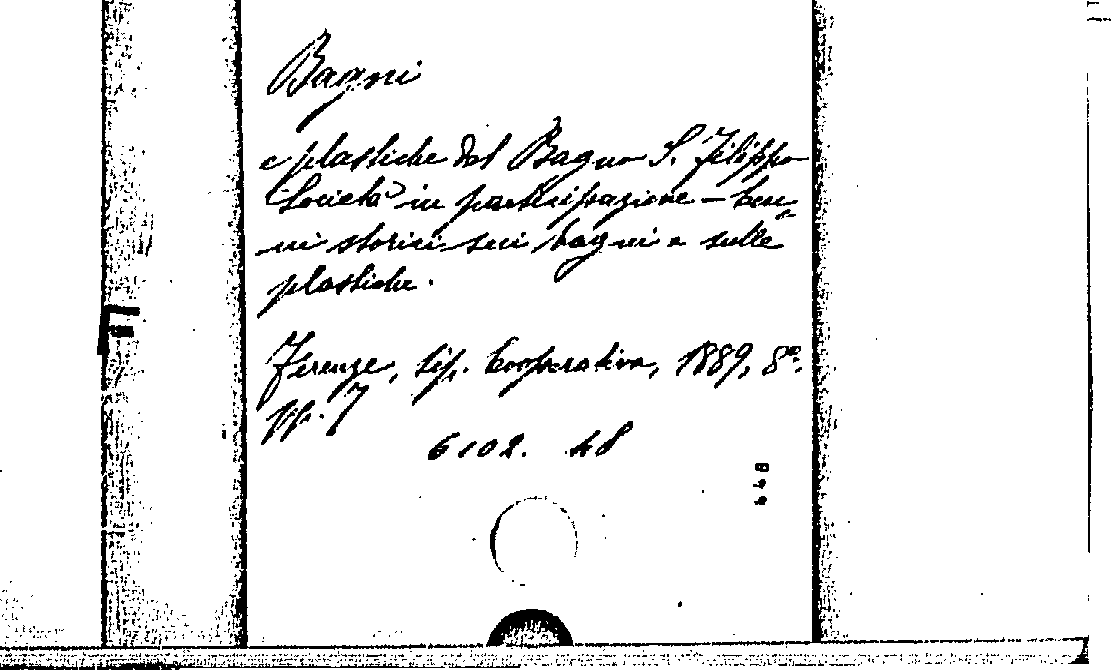 Bagni
e plastiche del Bagno S. Filippo
Società in partecipazione – Cen=
ni storici sui bagni e sulle
plastiche.
Firenze, tip. Cooperativa, 1889, 8°.
pp. 7
6102. 48
448
F